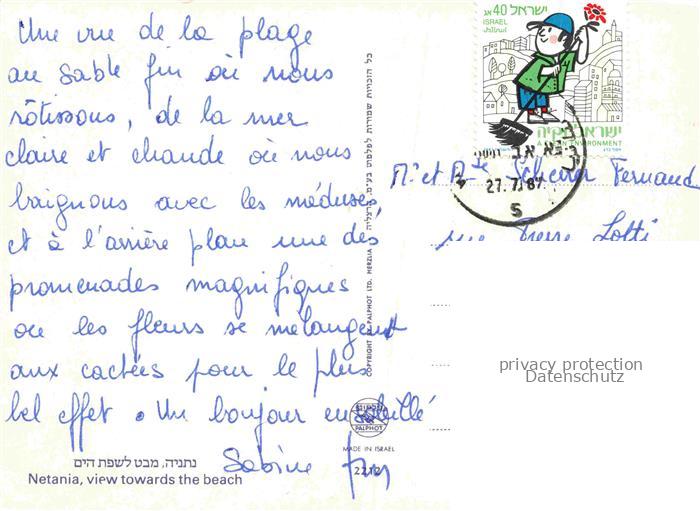 Une vue de la plage
au sable fin où nous
rôtissons, de la mer
claire et chaude où nous
baignons avec les méduses,
et à l'arrière plan une des
promenades magnifiques
où les fleurs se mélangent
aux cactées pour le plus
bel effet. Un bonjour ensoleillé
Sabine
נתניה, מבט לשפת הים
Netania, view towards the beach
כל הזכויות שמורות לפלפוט בע"מ הרצליה
COPYRIGHT BY PALPHOT LTD. HERZLIA
PALPHOT
MADE IN ISRAEL
2212
ישראל 40 אג
ISRAEL
ישראל יפה נקיה
ENVIRONMENT
27.7.87
5
Mr et Mme Scherrer Fernand
rue Pierre Lotti
privacy protection
Datenschutz